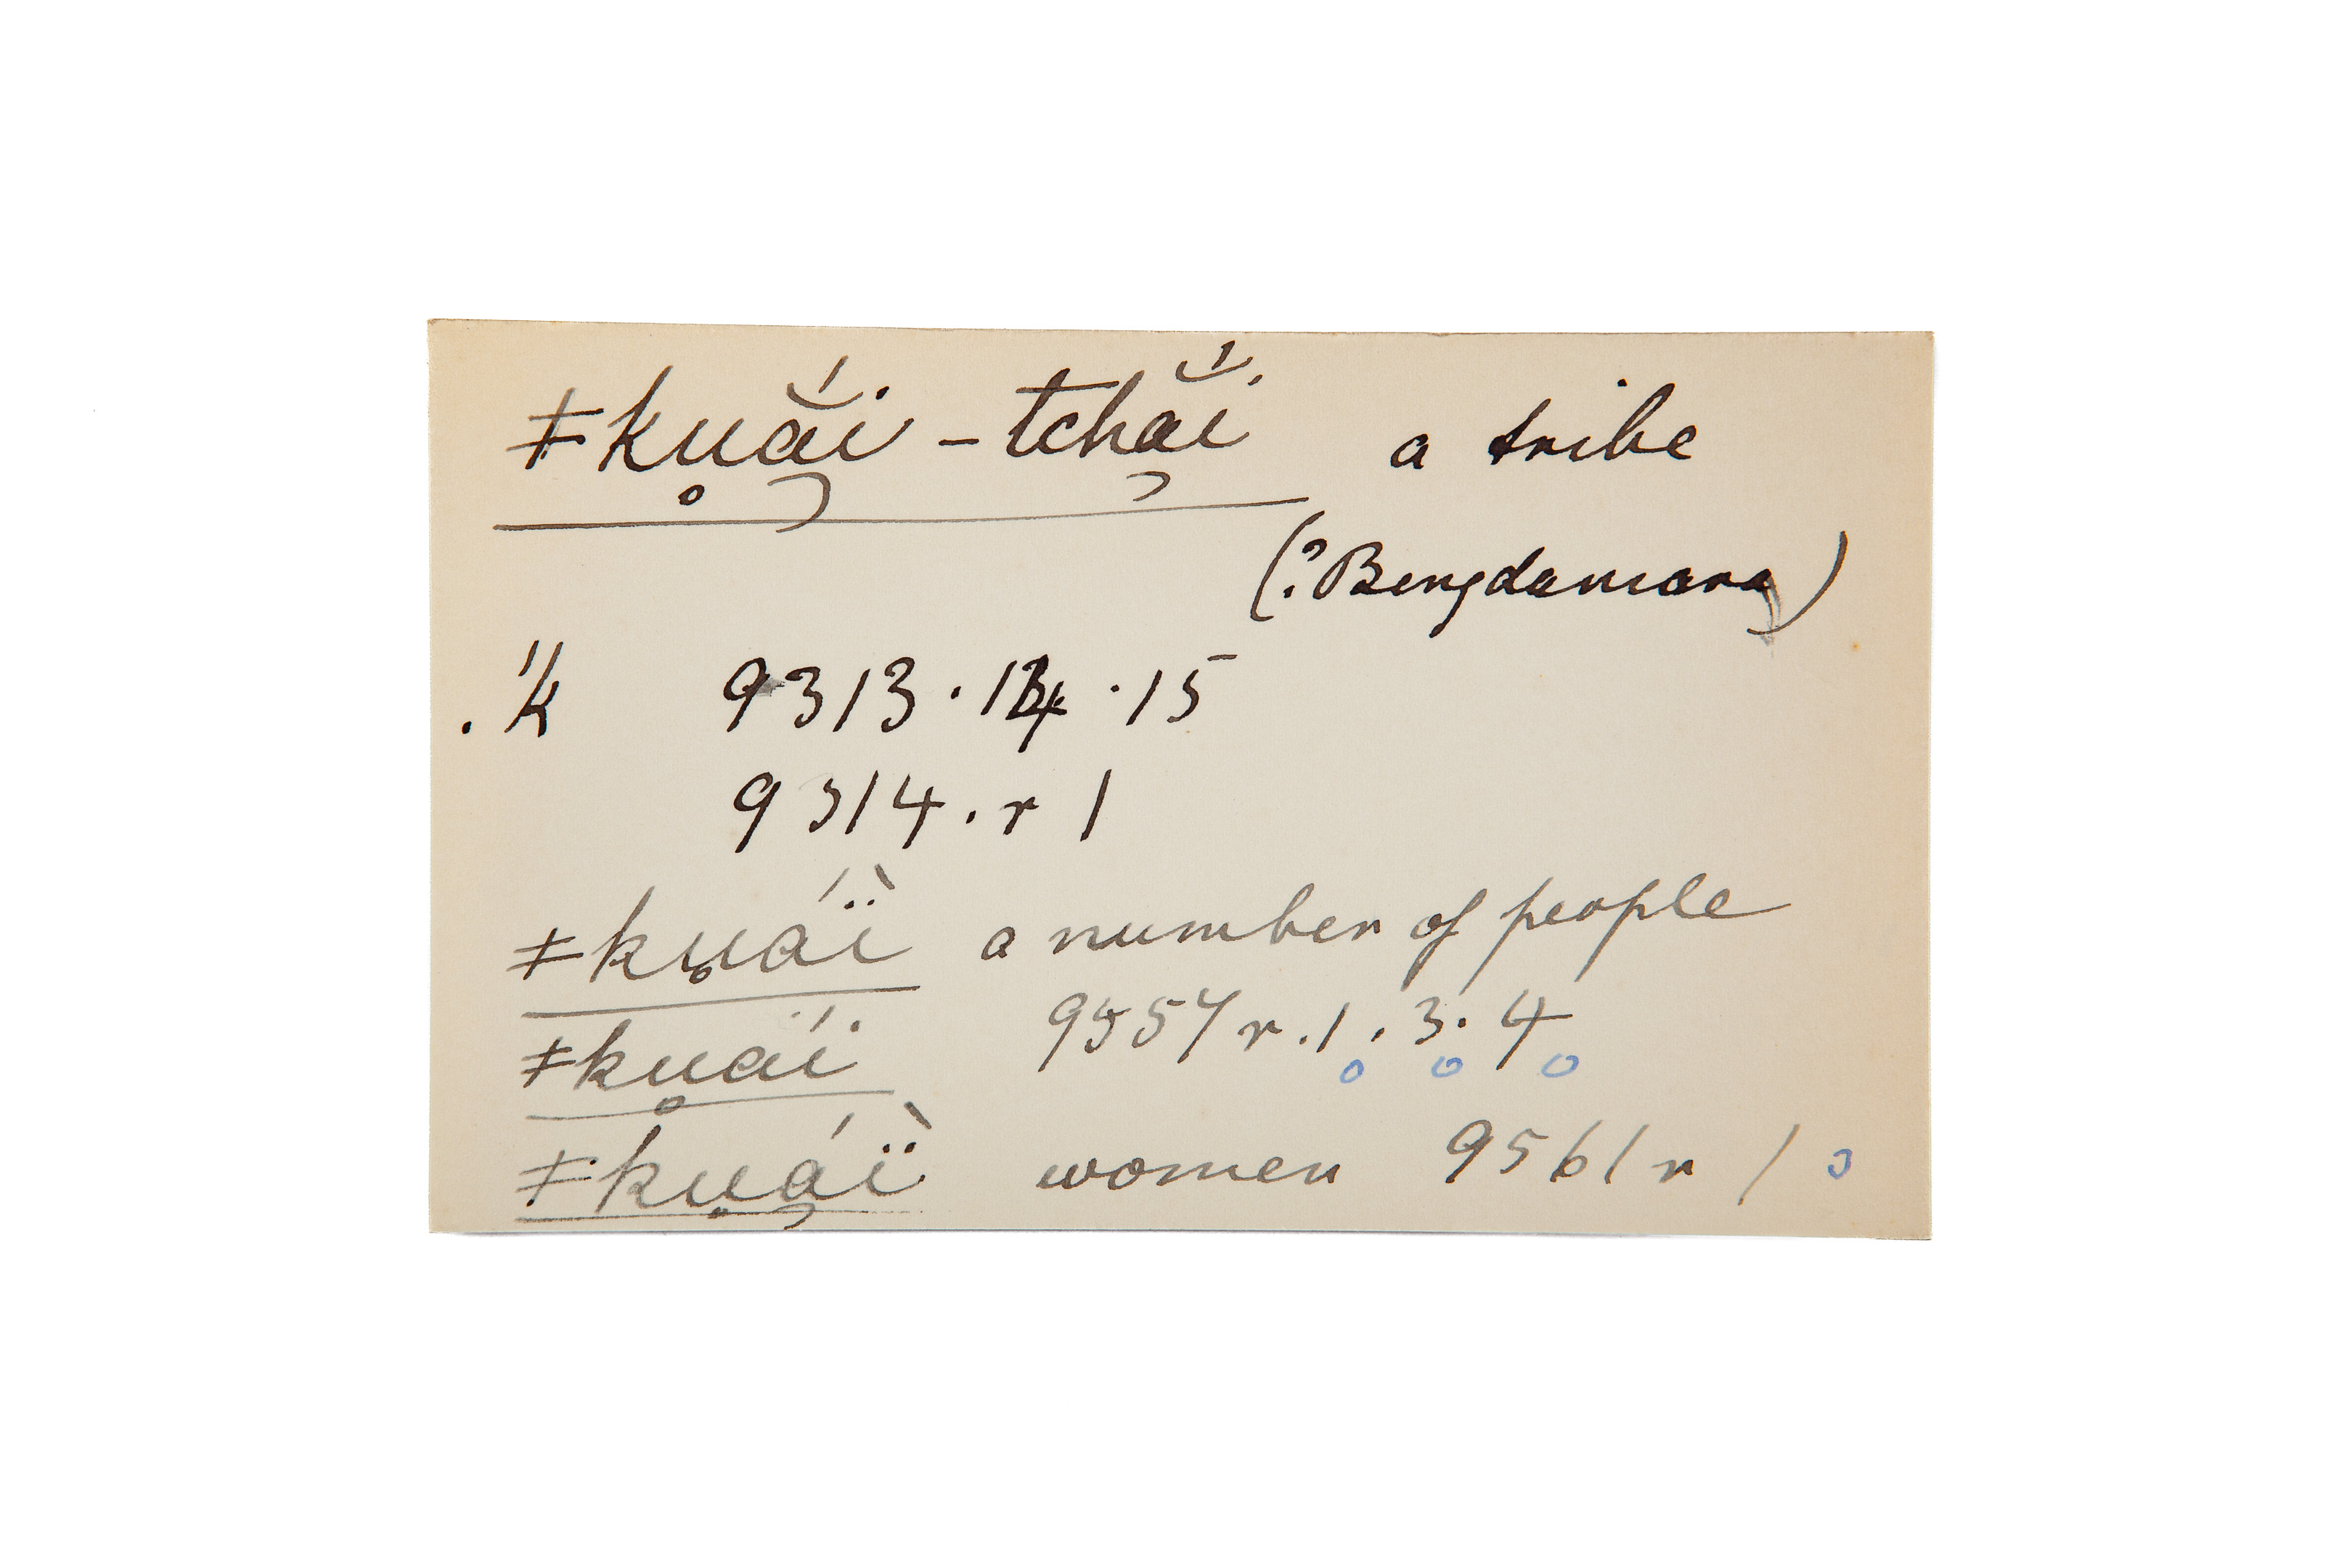 ǂku̥ắ̆i - tchắ̆i a tribe
(? Bergdamara)
. "k 9313 . 14 . 15
9314 . r 1
ǂku̥áï̀ a number of people
9557 r . 1 . 3 . 4
ǂku̥ái
ǂku̥áï̀ women 9561 r 1